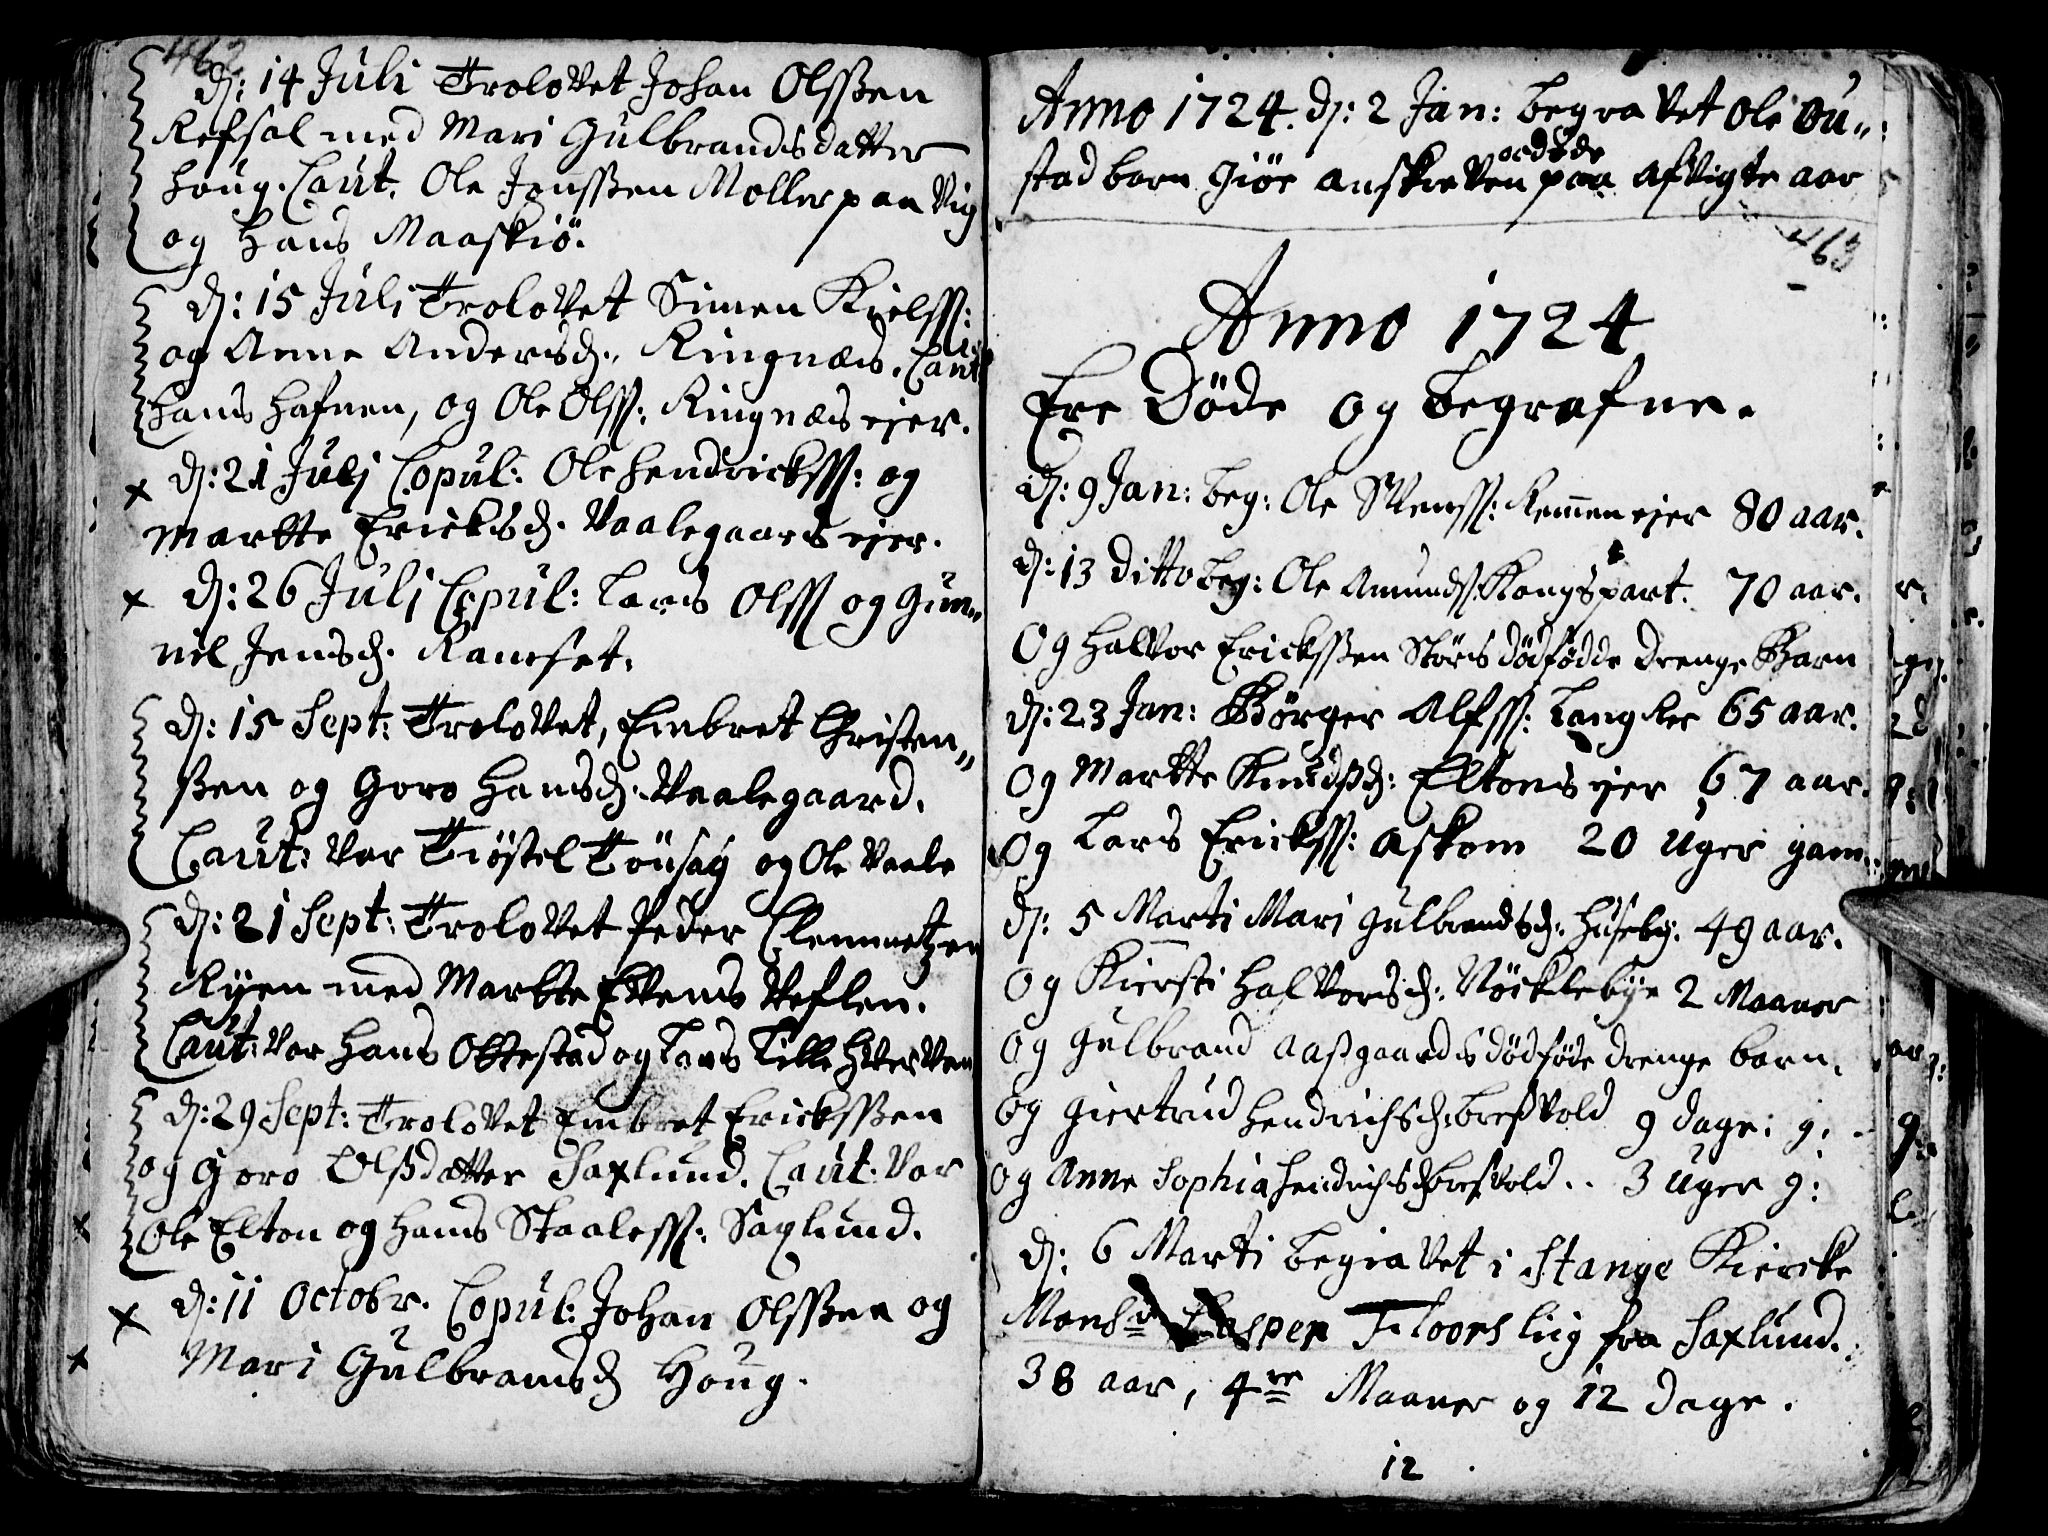 462
dj: 14 Juli Trolovet Johan Olsßen
Refsal med Mari Gulbrandsdatter
Houg. Caut. Ole Jensßen Moller paa Vig
og Hans Maaskiö.
dj: 15 Juli Trolovet Simen Kielss:
og Anne Andersdj. Ringnæs. Caut
Hans Hafnen, og Ole Olss: Ringnæs ejer.
dj: 21 Julj Copul: Ole Hendrickss: og
Martte Ericksdj. Vaalegaards ejer.
dj: 26 Julj Copul: Lars Olss og Gun„
nil Jensdj. Ramset.
dj: 15 Sept: Trolovet, Embret Christen„
ßen og Goro Hansdj. Vaalegaard.
Caut: var Tiöstel Tönsag og Ole Vaale
dj: 21 Sept: Trolovet Peder Clemmetzen
Ryen med Martte Evens Veflen.
Caut: var Hans Ottestad og Lars Lille Hverven
dj: 29 Sept: Trolovet Embret Ericksßen
og Goro Olsdatter Saxlund. Caut: var
Ole Elton og Hans Staaless: Saxlund.
dj: 11 Octobr. Copul: Johan Olsßen og
Mari Gulbransdj Houg.
Anno 1724. dj: 2 Jan: begravet Ole Ou„
stad barn giör anskreven paa afvigte aar
463
Anno 1724
Ere Döde og begrafne.
dj: 9 Jan: beg: Ole Svenss: Remmen ejer 80 aar.
dj: 13 Ditto beg: Ole Amunds: Kongspart. 70 aar.
Og Halvor Ericksßen Störs dödfödde drenge Barn
dj: 23 Jan: Börger Alfss: Lang Ree 65 aar.
Og Martte Knudsdj: Eltons ejer 67 aar.
Og Lars Erickss: Askom 20 Uger gam:
dj: 5 Marti Mari Gulbrandsdj. Huseby. 49 aar.
Og Kiersti Halvorsdj: Nöcklebye 2 Maaner
Og Gulbrand Aaßgaards dödföde drenge barn.
Og Giertrud Hendrichsdj: breßvold 9 dage: g:
Og Anne Sophia Hendrichsdj: breßvold.. 3 Uger g:
dj: 6 Marti begravet i Stange Kiercke
Monsr Casper Floors liig fra Saxlund.
38 aar, 4re Maaner og 12 dage.
12